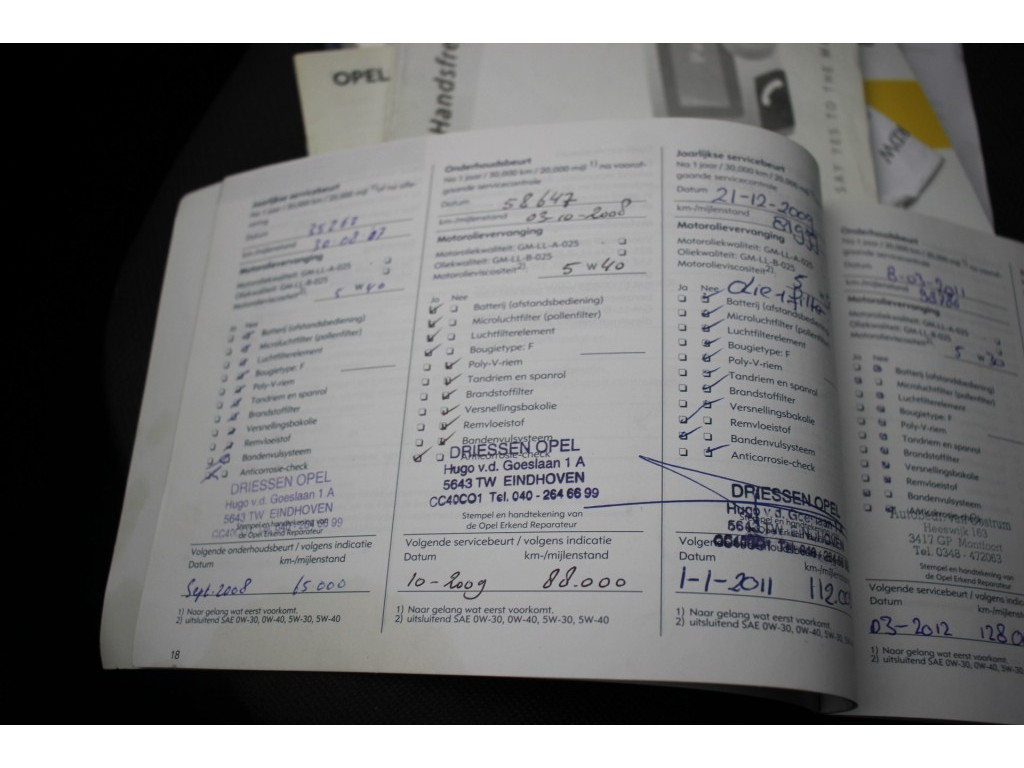 OPEL
Handsfre
SAY YES TO THE
Jaarlijkse servicebeurt
No 1 jaar / 30.000 km / 20.000 mijl
Datum
km-/mijlenstand
30-08-07
Motorolievervanging
Motoroliekwaliteit: GM-LL-A-025
Oliekwaliteit: GM-LL-B-025
5 W40
Ja Nee
Batterij (afstandsbediening)
Microluchtfilter (pollenfilter)
Luchtfilterelement
Bougietype: F
Poly-V-riem
Tandriem en spanrol
Brandstoffilter
Versnellingsbakolie
Remvloeistof
Bandenvulsysteem
Anticorrosie-check
DRIESSEN OPEL
Hugo v.d. Goeslaan 1 A
5643 TW EINDHOVEN
CC40CO1 Tel. 040 - 264 66 99
Stempel en handtekening van
de Opel Erkend Reparateur
Volgende onderhoudsbeurt / volgens indicatie
Datum km-/mijlenstand
Sept. 2008 65.000
1) Naar gelang wat eerst voorkomt.
2) uitsluitend SAE 0W-30, 0W-40, 5W-30, 5W-40
18
Onderhoudsbeurt
No 1 jaar / 30.000 km / 20.000 mijl 1) na vooraf-
gaande servicecontrole
Datum 58647
km-/mijlenstand 03-10-2008
Motorolievervanging
Motoroliekwaliteit: GM-LL-A-025
Oliekwaliteit: GM-LL-B-025
Motorolieviscositeit2): 5 W 40
Ja Nee
Batterij (afstandsbediening)
Microluchtfilter (pollenfilter)
Luchtfilterelement
Bougietype: F
Poly-V-riem
Tandriem en spanrol
Brandstoffilter
Versnellingsbakolie
Remvloeistof
Bandenvulsysteem
Anticorrosie-check
DRIESSEN OPEL
Hugo v.d. Goeslaan 1 A
5643 TW EINDHOVEN
CC40CO1 Tel. 040 - 264 66 99
Stempel en handtekening van
de Opel Erkend Reparateur
Volgende servicebeurt / volgens indicatie
Datum km-/mijlenstand
10-2009 88.000
1) Naar gelang wat eerst voorkomt.
2) uitsluitend SAE 0W-30, 0W-40, 5W-30, 5W-40
Jaarlijkse servicebeurt
No 1 jaar / 30.000 km / 20.000 mijl
gaande servicecontrole
Datum 21-12-2009
km-/mijlenstand
Motorolievervanging
Motoroliekwaliteit: GM-LL-A-025
Oliekwaliteit: GM-LL-B-025
Motorolieviscositeit2): 5
Ja Nee
Batterij (afstandsbediening)
Microluchtfilter (pollenfilter)
Luchtfilterelement
Bougietype: F
Poly-V-riem
Tandriem en spanrol
Brandstoffilter
Versnellingsbakolie
Remvloeistof
Bandenvulsysteem
Anticorrosie-check
DRIESSEN OPEL
Hugo v.d. Goeslaan
5643 TW EINDHOVEN
Datum km-/mijlenstand
1-1-2011 112.00
1) Naar gelang wat eerst voorkomt.
2) uitsluitend SAE 0W-30, 0W-40, 5W-30, 5W
Onderhoudsbeurt
Datum 8-03-2011
km-/mijlenstand
Motorolievervanging
Motoroliekwaliteit: GM-LL-A-025
Oliekwaliteit: GM-LL-B-025
5 W30
Ja Nee
Batterij (afstandsbediening)
Microluchtfilter (pollenfilter)
Luchtfilterelement
Bougietype: F
Poly-V-riem
Tandriem en spanrol
Brandstoffilter
Versnellingsbakolie
Remvloeistof
Bandenvulsysteem
Anticorrosie-check
Heeswijk 163
3417 GP Montfoort
Tel. 0348 - 472063
Stempel en handtekening van
de Opel Erkend Reparateur
Volgende servicebeurt / volgens indicatie
Datum km-/mijlenstand
03-2012 128.0
1) Naar gelang wat eerst voorkomt.
2) uitsluitend SAE 0W-30, 0W-40, 5W-30, 5W-40